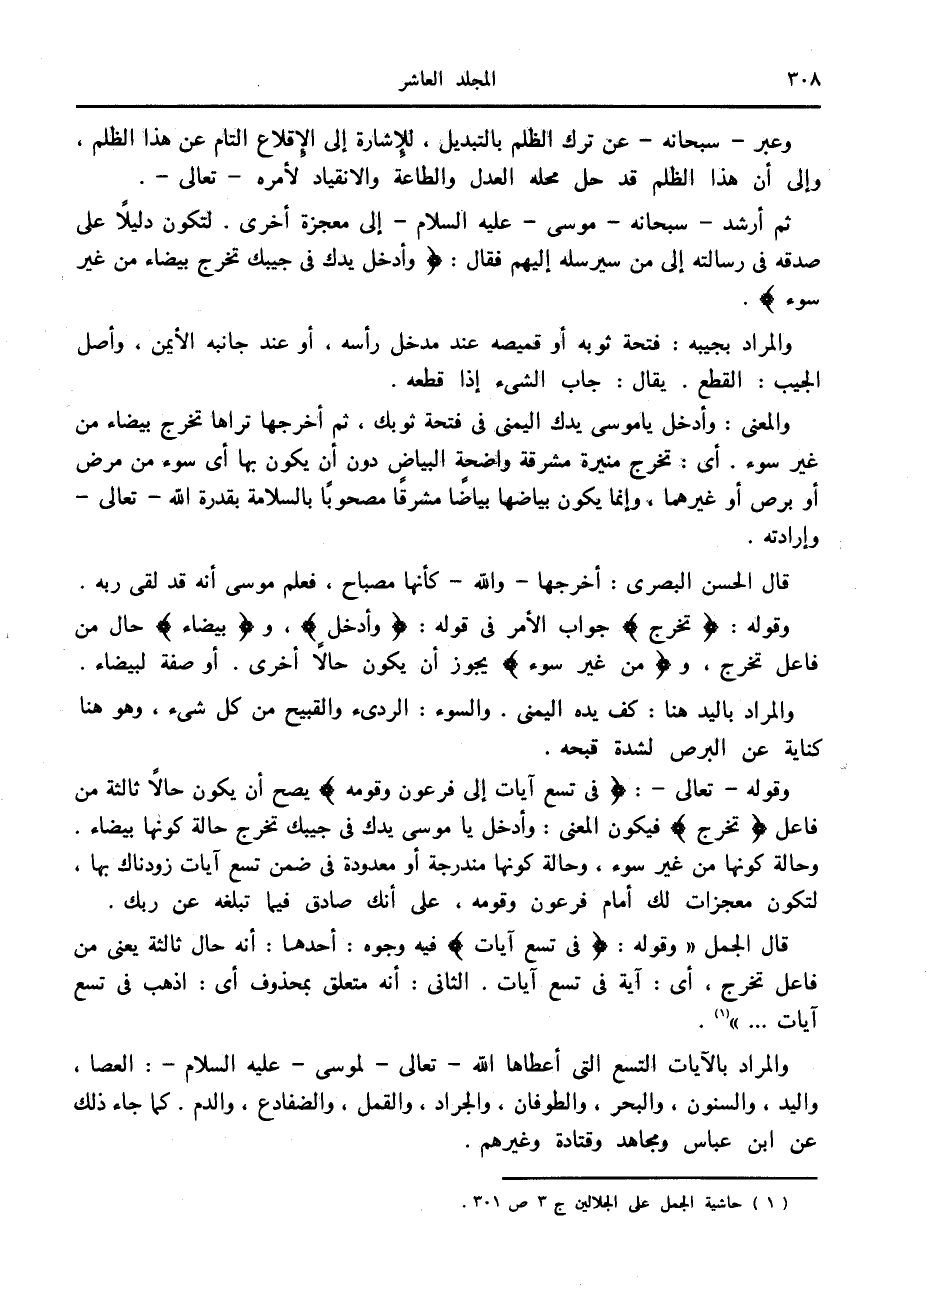 ٣٠٨ المجلد العاشر
وعبر - سبحانه - عن ترك الظلم بالتبديل ، للإشارة إلى الإقلاع التام عن هذا الظلم ،
وإلى أن هذا الظلم قد حل محله العدل والطاعة والانقياد لأمره - تعالى - .
ثم أرشد - سبحانه - موسى - عليه السلام - إلى معجزة أخرى . لتكون دليلًا على
صدقه فى رسالته إلى من سيرسله إليهم فقال : ﴿ وأدخل يدك فى جيبك تخرج بيضاء من غير
سوء ﴾ .
والمراد بجيبه : فتحة ثوبه أو قميصه عند مدخل رأسه ، أو عند جانبه الأيمن ، وأصل
الجيب : القطع . يقال : جاب الشىء إذا قطعه .
والمعنى : وأدخل ياموسى يدك اليمنى فى فتحة ثوبك ، ثم أخرجها تراها تخرج بيضاء من
غير سوء . أى : تخرج منيرة مشرقة واضحة البياض دون أن يكون بها أى سوء من مرض
أو برص أو غيرهما ، وإنما يكون بياضها بياضًا مشرقًا مصحوبًا بالسلامة بقدرة الله - تعالى -
وإرادته .
قال الحسن البصرى : أخرجها - والله - كأنها مصباح ، فعلم موسى أنه قد لقى ربه .
وقوله : ﴿ تخرج ﴾ جواب الأمر فى قوله : ﴿ وأدخل ﴾ ، و ﴿ بيضاء ﴾ حال من
فاعل تخرج ، و ﴿ من غير سوء ﴾ يجوز أن يكون حالًا أخرى . أو صفة لبيضاء .
والمراد باليد هنا : كف يده اليمنى . والسوء : الردىء والقبيح من كل شىء ، وهو هنا
كناية عن البرص لشدة قبحه .
وقوله - تعالى - : ﴿ فى تسع آيات إلى فرعون وقومه ﴾ يصح أن يكون حالًا ثالثة من
فاعل ﴿ تخرج ﴾ فيكون المعنى : وأدخل يا موسى يدك فى جيبك تخرج حالة كونها بيضاء .
وحالة كونها من غير سوء ، وحالة كونها مندرجة أو معدودة فى ضمن تسع آيات زودناك بها ،
لتكون معجزات لك أمام فرعون وقومه ، على أنك صادق فيما تبلغه عن ربك .
قال الجمل « وقوله : ﴿ فى تسع آيات ﴾ فيه وجوه : أحدهما : أنه حال ثالثة يعنى من
فاعل تخرج ، أى : آية فى تسع آيات . الثانى : أنه متعلق بمحذوف أى : اذهب فى تسع
آيات ... »(١) .
والمراد بالآيات التسع التى أعطاها الله - تعالى - لموسى - عليه السلام - : العصا ،
واليد ، والسنون ، والبحر ، والطوفان ، والجراد ، والقمل ، والضفادع ، والدم . كما جاء ذلك
عن ابن عباس ومجاهد وقتادة وغيرهم .
( ١ ) حاشية الجمل على الجلالين ج ٣ ص ٣٠١ .